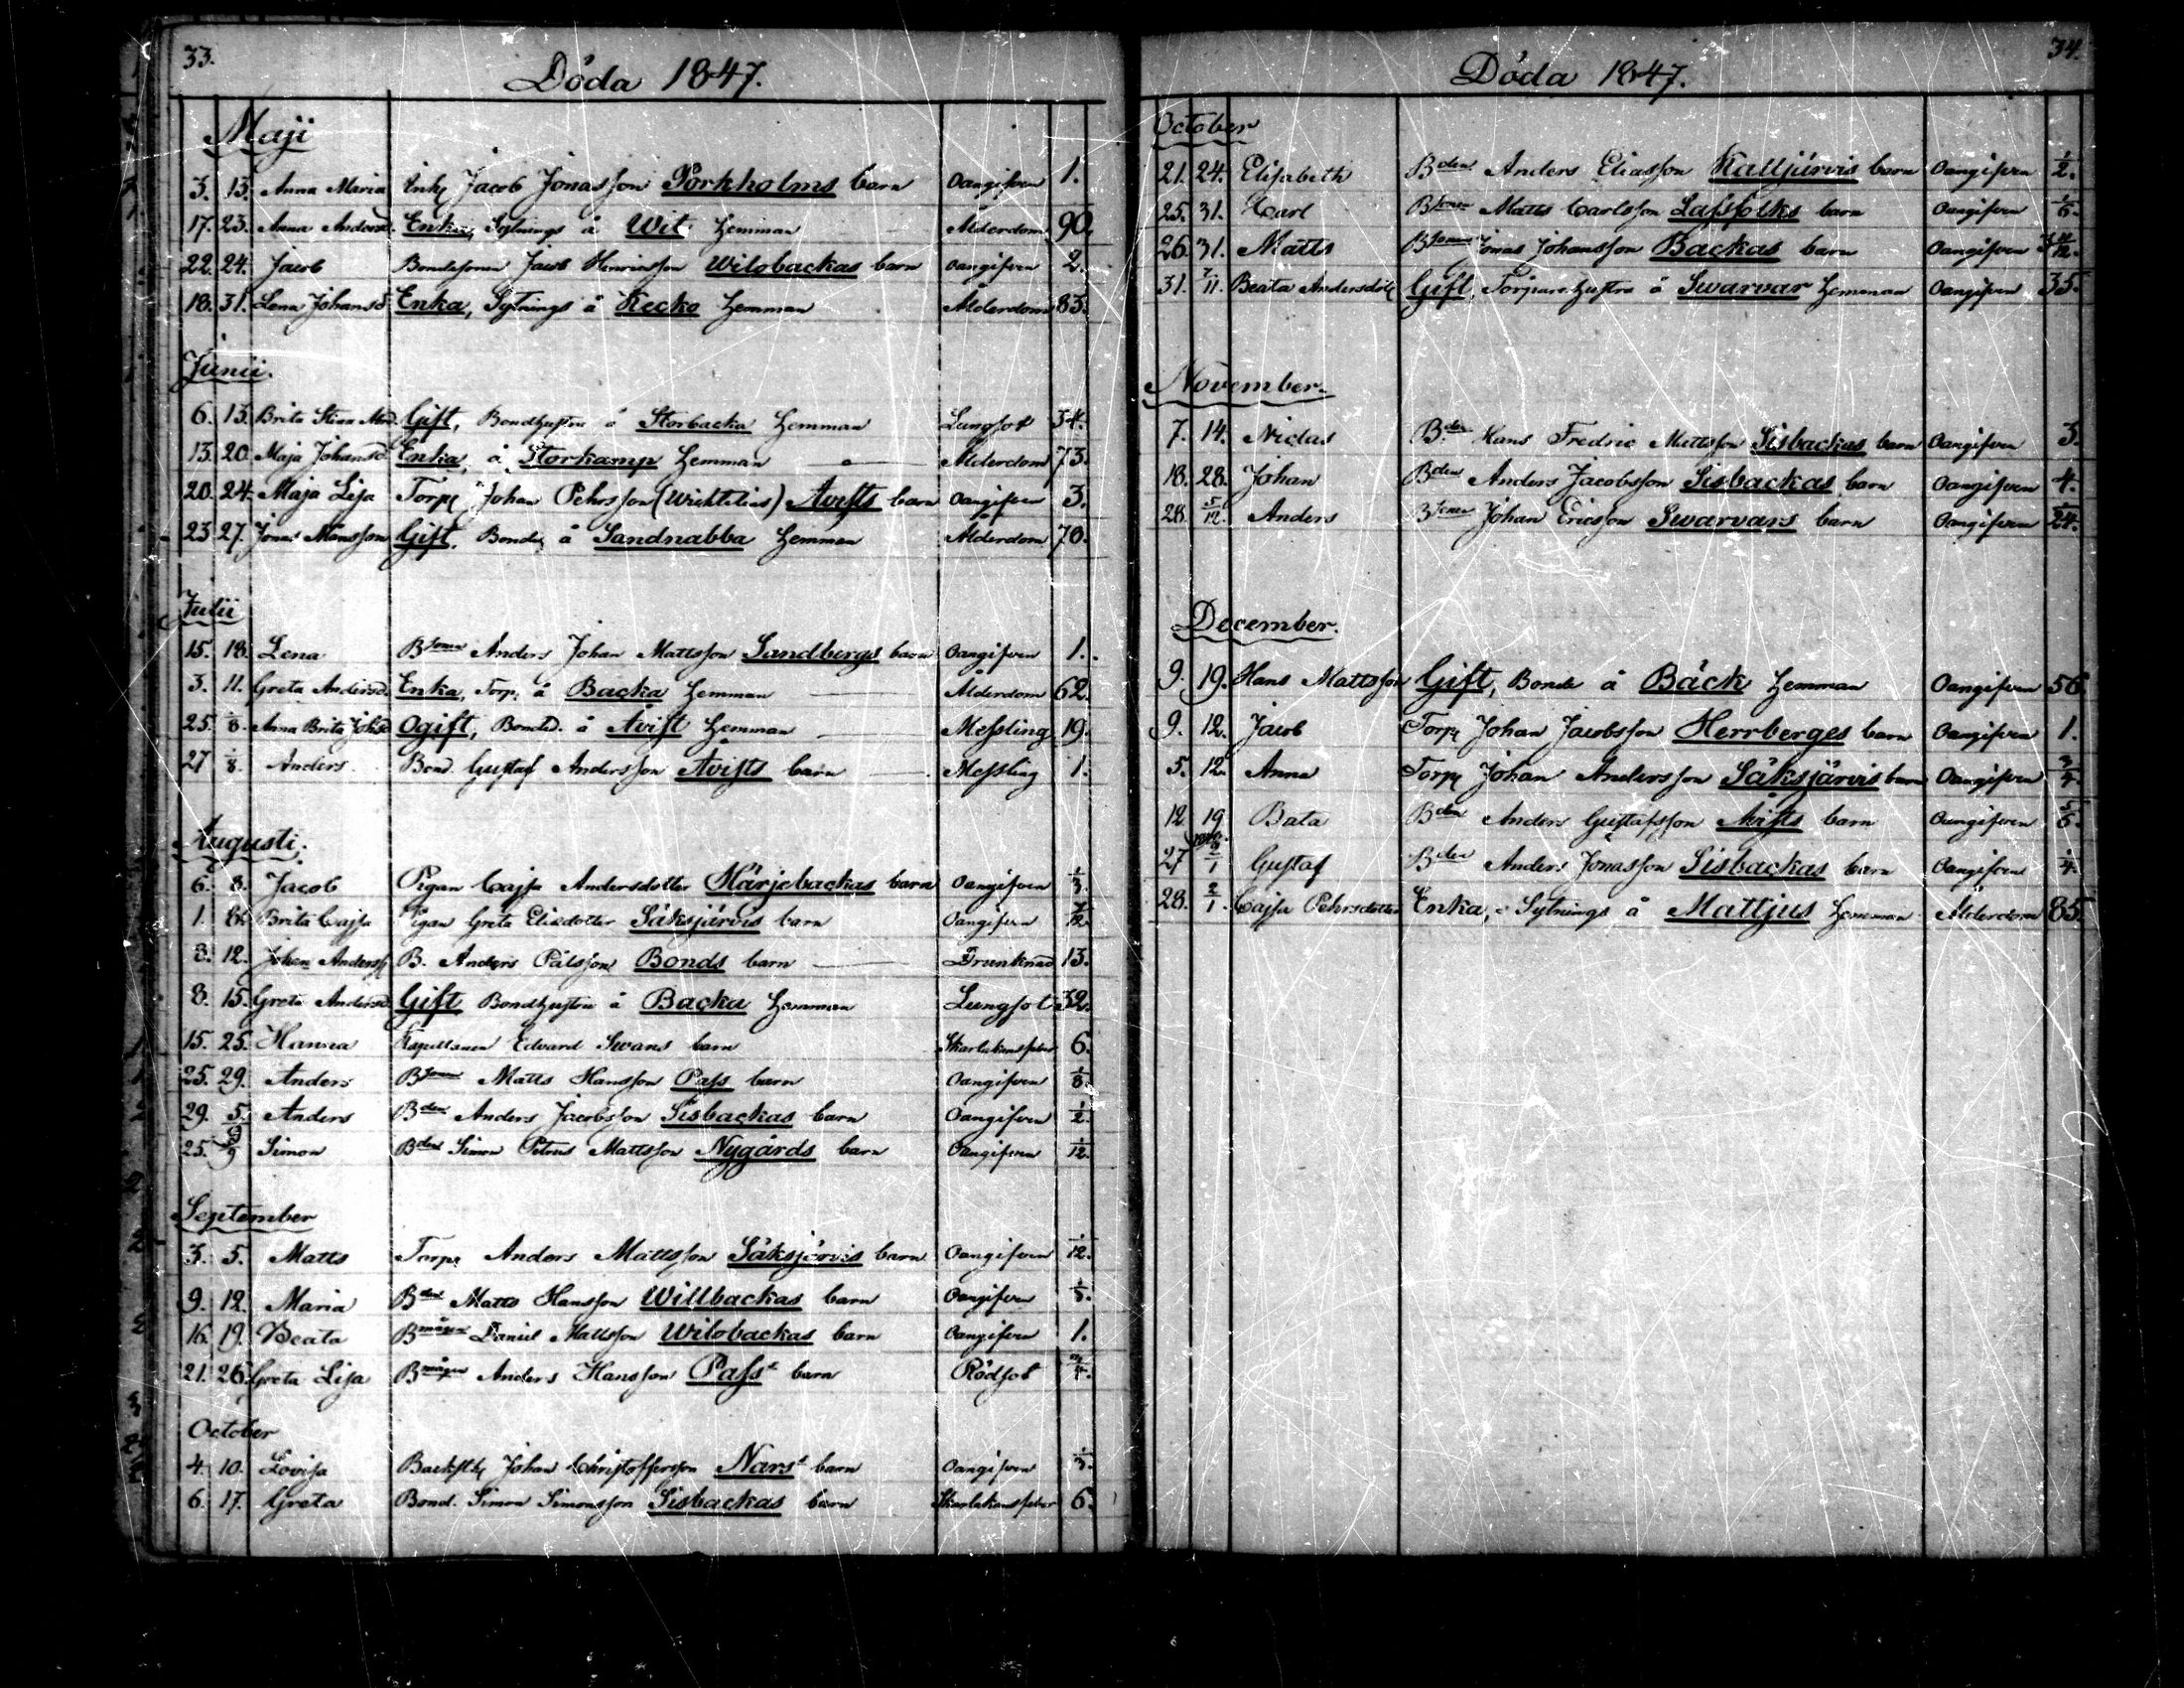 33.
Döda 1847.
Maji
3. 13. Anna Maria Enkl Jacob Jonasson Porkholms barn Oangifven 1.
17. 23. Anna Andersd. Enka, Sytnings å Wit Hemman Ålderdom 90.
22. 24. Jacob Bondesonen Jacob Henricsson Wilobackas barn Oangifven 2.
18. 31. Lena Johansd. Enka, Sytnings å Kecko Hemman Ålderdom 83.
Junii.
6. 13. Brita Stina Gift, Bondhustru å Storbacka Hemman Lungsot 34.
13. 20. Maja Johansd. Enka, å Storkamp Hemman Ålderdom 73.
20. 24. Maja Lisa Torp Johan Pehrsson (Wichtelius) Åvists barn Oangifven 3.
23 27. Jonas Månsson Gift. Bonde å Sandnabba Hemman Ålderdom 70.
Julii
15. 18. Lena Bsonen Anders Johan Mattsson Sandbergs barn Oangifven 1.
3. 11. Greta Andersd. Enka, Torp. å Backa Hemman Ålderdom 62.
25. 1/8. Anna Brita Johsd Ogift, Bonded. å Åvist Hemman Messling 19.
27 1/8. Anders Bond. Gustaf Andersson Åvists barn Messling 1.
Augusti.
6. 8. Jacob Pigan Cajsa Andersdotter Härjebackas barn Oangifven 1/3.
1. 8. Brita Cajsa Pigan Greta Eliedotter Sääksjärvis barn Oangifven 7/12.
8. 12. Johan Anderss B. Anders Pålssons Bonds barn Drunknad 13.
8. 15. Greta Andersd. Gift Bondhustru å Backa Hemman Lungsot 32.
15. 25. Hanna Kapellanen Edvard Swans barn Skarlakansfeber 6.
25. 29. Anders Bsonen Matts Hansson Pass barn Oangifven 1/8.
29. 5/9. Anders Bden Anders Jacobsson Sisbackas barn Oangifven 1/2.
25. 5/9 Simon Bden Simon Petrus Mattsson Nygårds barn Oangifven 1/12.
September
3. 5. Matts Torp. Anders Mattsson Sääksjärvis barn Oangifven 1/12.
9. 12. Maria Bden Matts Hansson Willbackas barn Oangifven 1/3.
16. 19. Beata Bmågen Daniel Mattsson Wilobackas barn Oangifven 1.
21. 26. Greta Lisa Bmågen Anders Hansson Pass barn Rödsot 3/4.
October
4. 10. Lovisa Backst Johan Christoffersson Nars barn Oangifven 1/3.
6. 17. Greta Bond. Simon Simonsson Sisbackas barn Skarlakansfeber 6.
34.
Döda 1847.
October
21. 24. Elisabeth Bden Anders Eliasson Kalljärvis barn Oangifven 1/2.
25. 31. Carl Bsonen Matts Carlsson Lassfolks barn Oangifven 1/6.
26. 31. Matts Bsonen Jonas Johansson Backas barn Oangifven
31. 7/11. Beata Andersdott Gift, Torpare hustru å Swarvar Hemman Oangifven 35.
November.
7. 14. Niclas Bden Hans Fredric Mattsson Sisbackas barn Oangifven 3.
18. 28. Johan Bden Anders Jacobsson Sisbackas barn Oangifven 4.
28 5/12. Anders Bsonen Johan Ericsson Swarvars barn Oangifven
December.
9. 19. Hans Mattsson Gift, Bonde å Bäck Hemman Oangifven 56.
9. 12. Jacob Torp Johan Jacobsson Herrberges barn Oangifven 1.
5. 12. Anna Torp Johan Andersson Sääksjärvis barn Oangifven 3/4.
12 19 Bata Bden Anders Gustafsson Åvists barn Oangifven
27 2/1 Gustaf Bden Anders Jonasson Sisbackas barn Oangifven 1/4.
28. 2/1. Cajsa Pehrsdotter Enka, Sytnings å Mattjus Hemman Ålderdom 85.